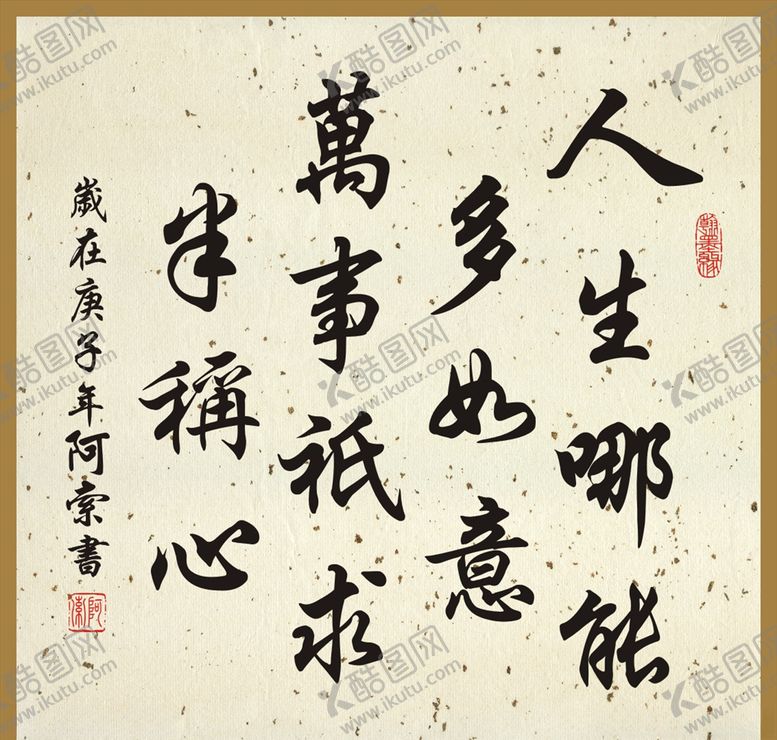 人生哪能
多如意
萬事祇求
半稱心
歲在庚子年阿索書
翰墨緣
阿索
酷图网
www.ikutu.com